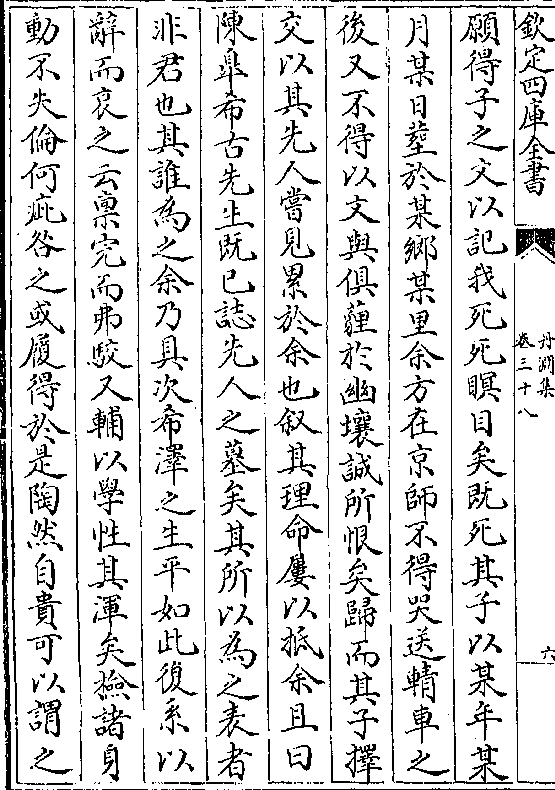 欽定四庫全書
丹淵集
卷三十八
六
願得子之文以記我死死瞑目矣既死其子以某年某
月某日塟於某鄉某里余方在京師不得哭送輤車之
後又不得以文與俱薶於幽壤誠所恨矣歸而其子擇
交以其先人嘗見累於余也叙其理命屢以抵余且曰
陳臯希古先生既已誌先人之墓矣其所以為之表者
非君也其誰為之余乃具次希澤之生平如此復系以
辭而哀之云稟完而弗駮又輔以學性其渾矣撿諸身
動不失倫何疵咎之或履得於是陶然自貴可以謂之